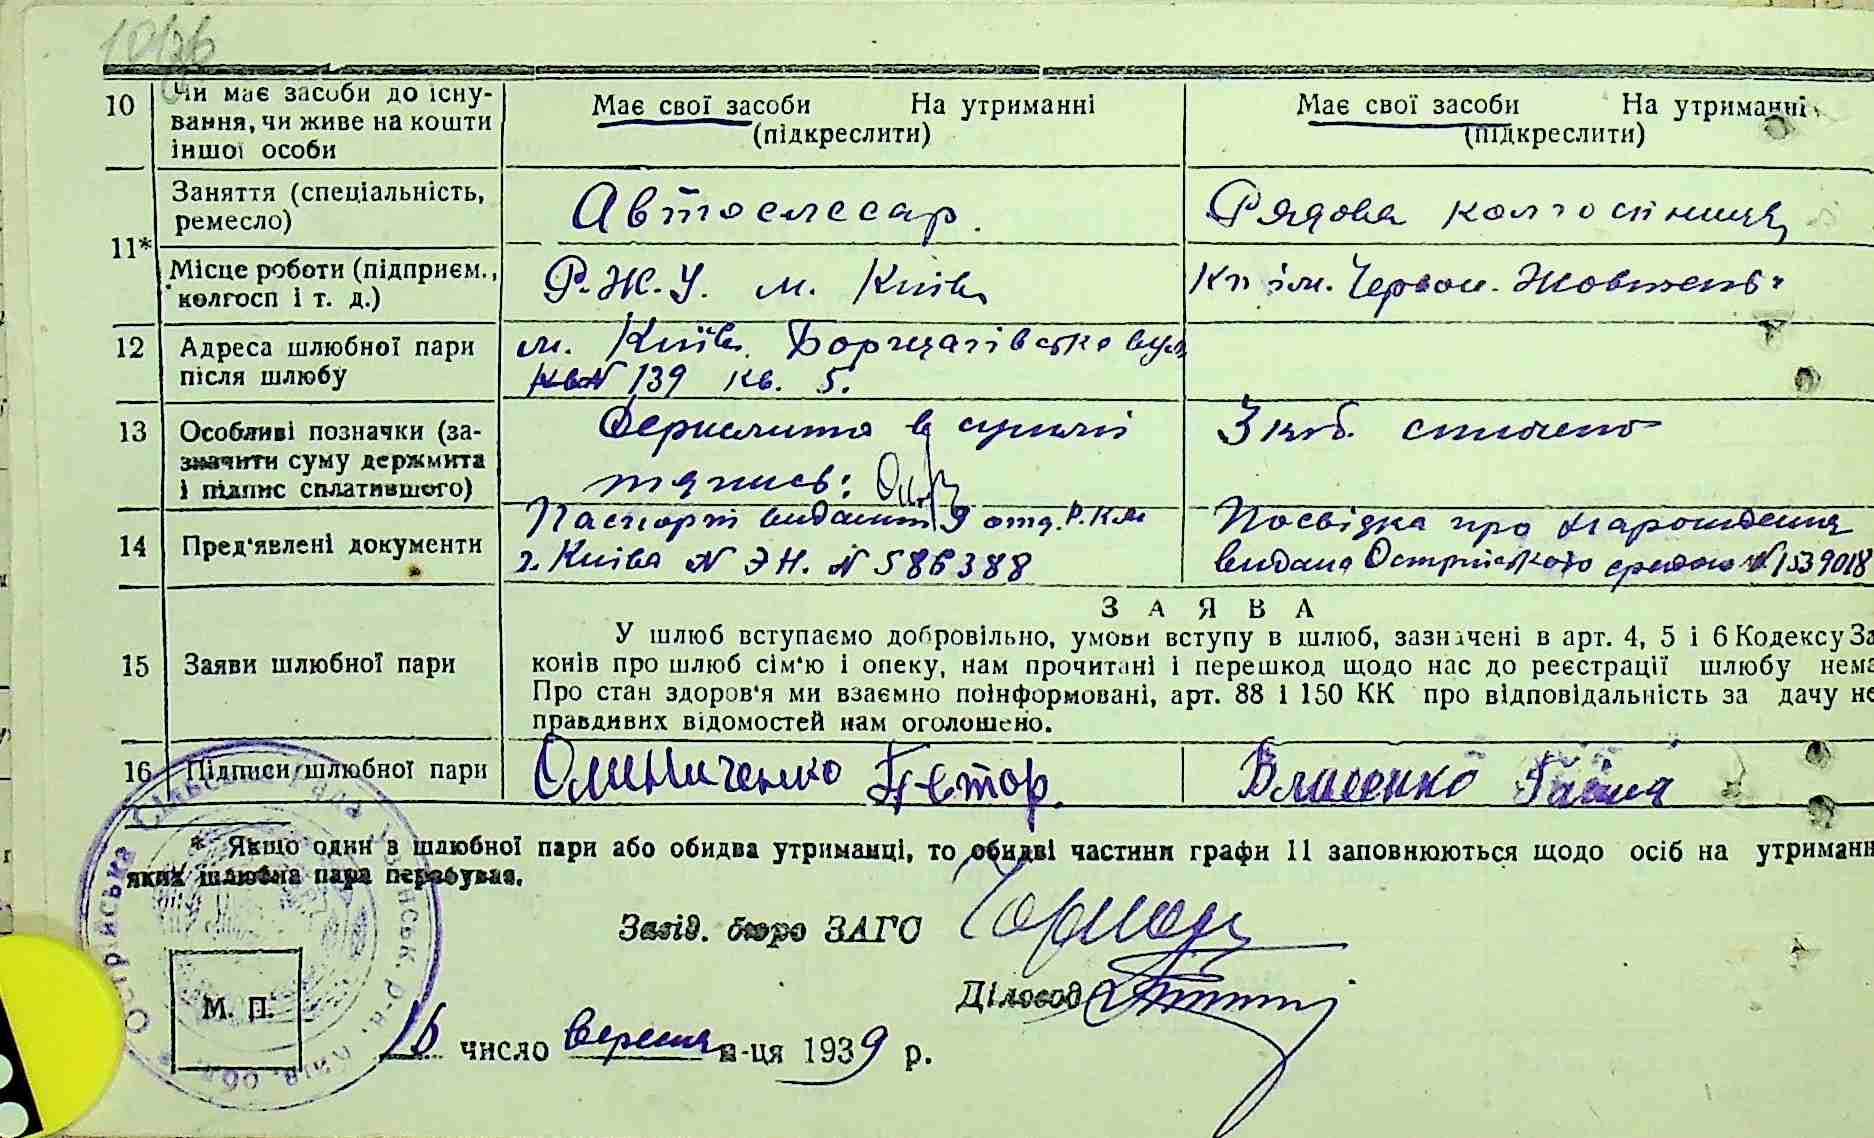 10
Чи має засоби до існу-
вання, чи живе на кошти
іншої особи
Має свої засоби На утриманні
(підкреслити)
Має свої засоби На утриманні
(підкреслити)
11*
Заняття (спеціальність,
ремесло)
Автослесар.
Рядова колгоспниця
Місце роботи (підприєм.,
колгосп і т. д.)
Р.Ж.У. м. Київ
ім. Червон. Жовтень
12
Адреса шлюбної пари
після шлюбу
м. Київ, Борщагівська вул
N 139 кв. 5.
13
Особливі позначки (за-
значити суму держмита
і підпис сплатившого)
Держмито в сумі
підпись:
3 крб. сплачено
14
Пред'явлені документи
Паспорт виданий 9 отд. Р.К.М
г. Київа N ЭН. N 586388
Посвідка про народження
видана Острійською N 1539018
З А Я В А
15
Заяви шлюбної пари
У шлюб вступаємо добровільно, умови вступу в шлюб, зазначені в арт. 4, 5 і 6 Кодексу За
конів про шлюб сім'ю і опеку, нам прочитані і перешкод щодо нас до реєстрації шлюбу нема
Про стан здоров'я ми взаємно поінформовані, арт. 88 і 150 КК про відповідальність за дачу не
правдивих відомостей нам оголошено.
16
Підписи шлюбної пари
Олиниченко
Власенко
* Якщо один в шлюбної пари або обидва утриманці, то обидві частини графи 11 заповнюються щодо осіб на утриманн
яких шлюбна пара перебуває.
Завід. бюро ЗАГС
Діловод
М. П.
Острійська Сільська Рада р-на, Київ. обл.
16 число вересня м-ця 1939 р.